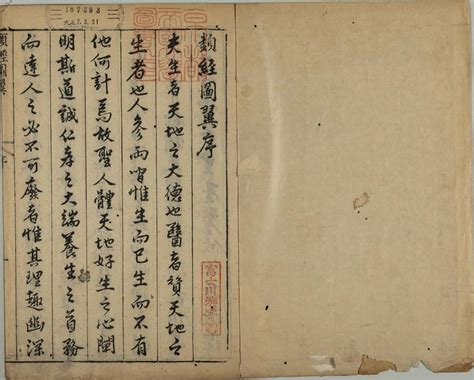 類經圖翼序
夫生者天地之大德也醫者贊天地之
生者也人參兩間惟生而已生而不有
他何計焉故聖人體天地好生之心闡
明斯道誠仁孝之大端養生之首務
而達人之必不可廢者惟其理趣幽深
類經圖翼
富士川游寄贈